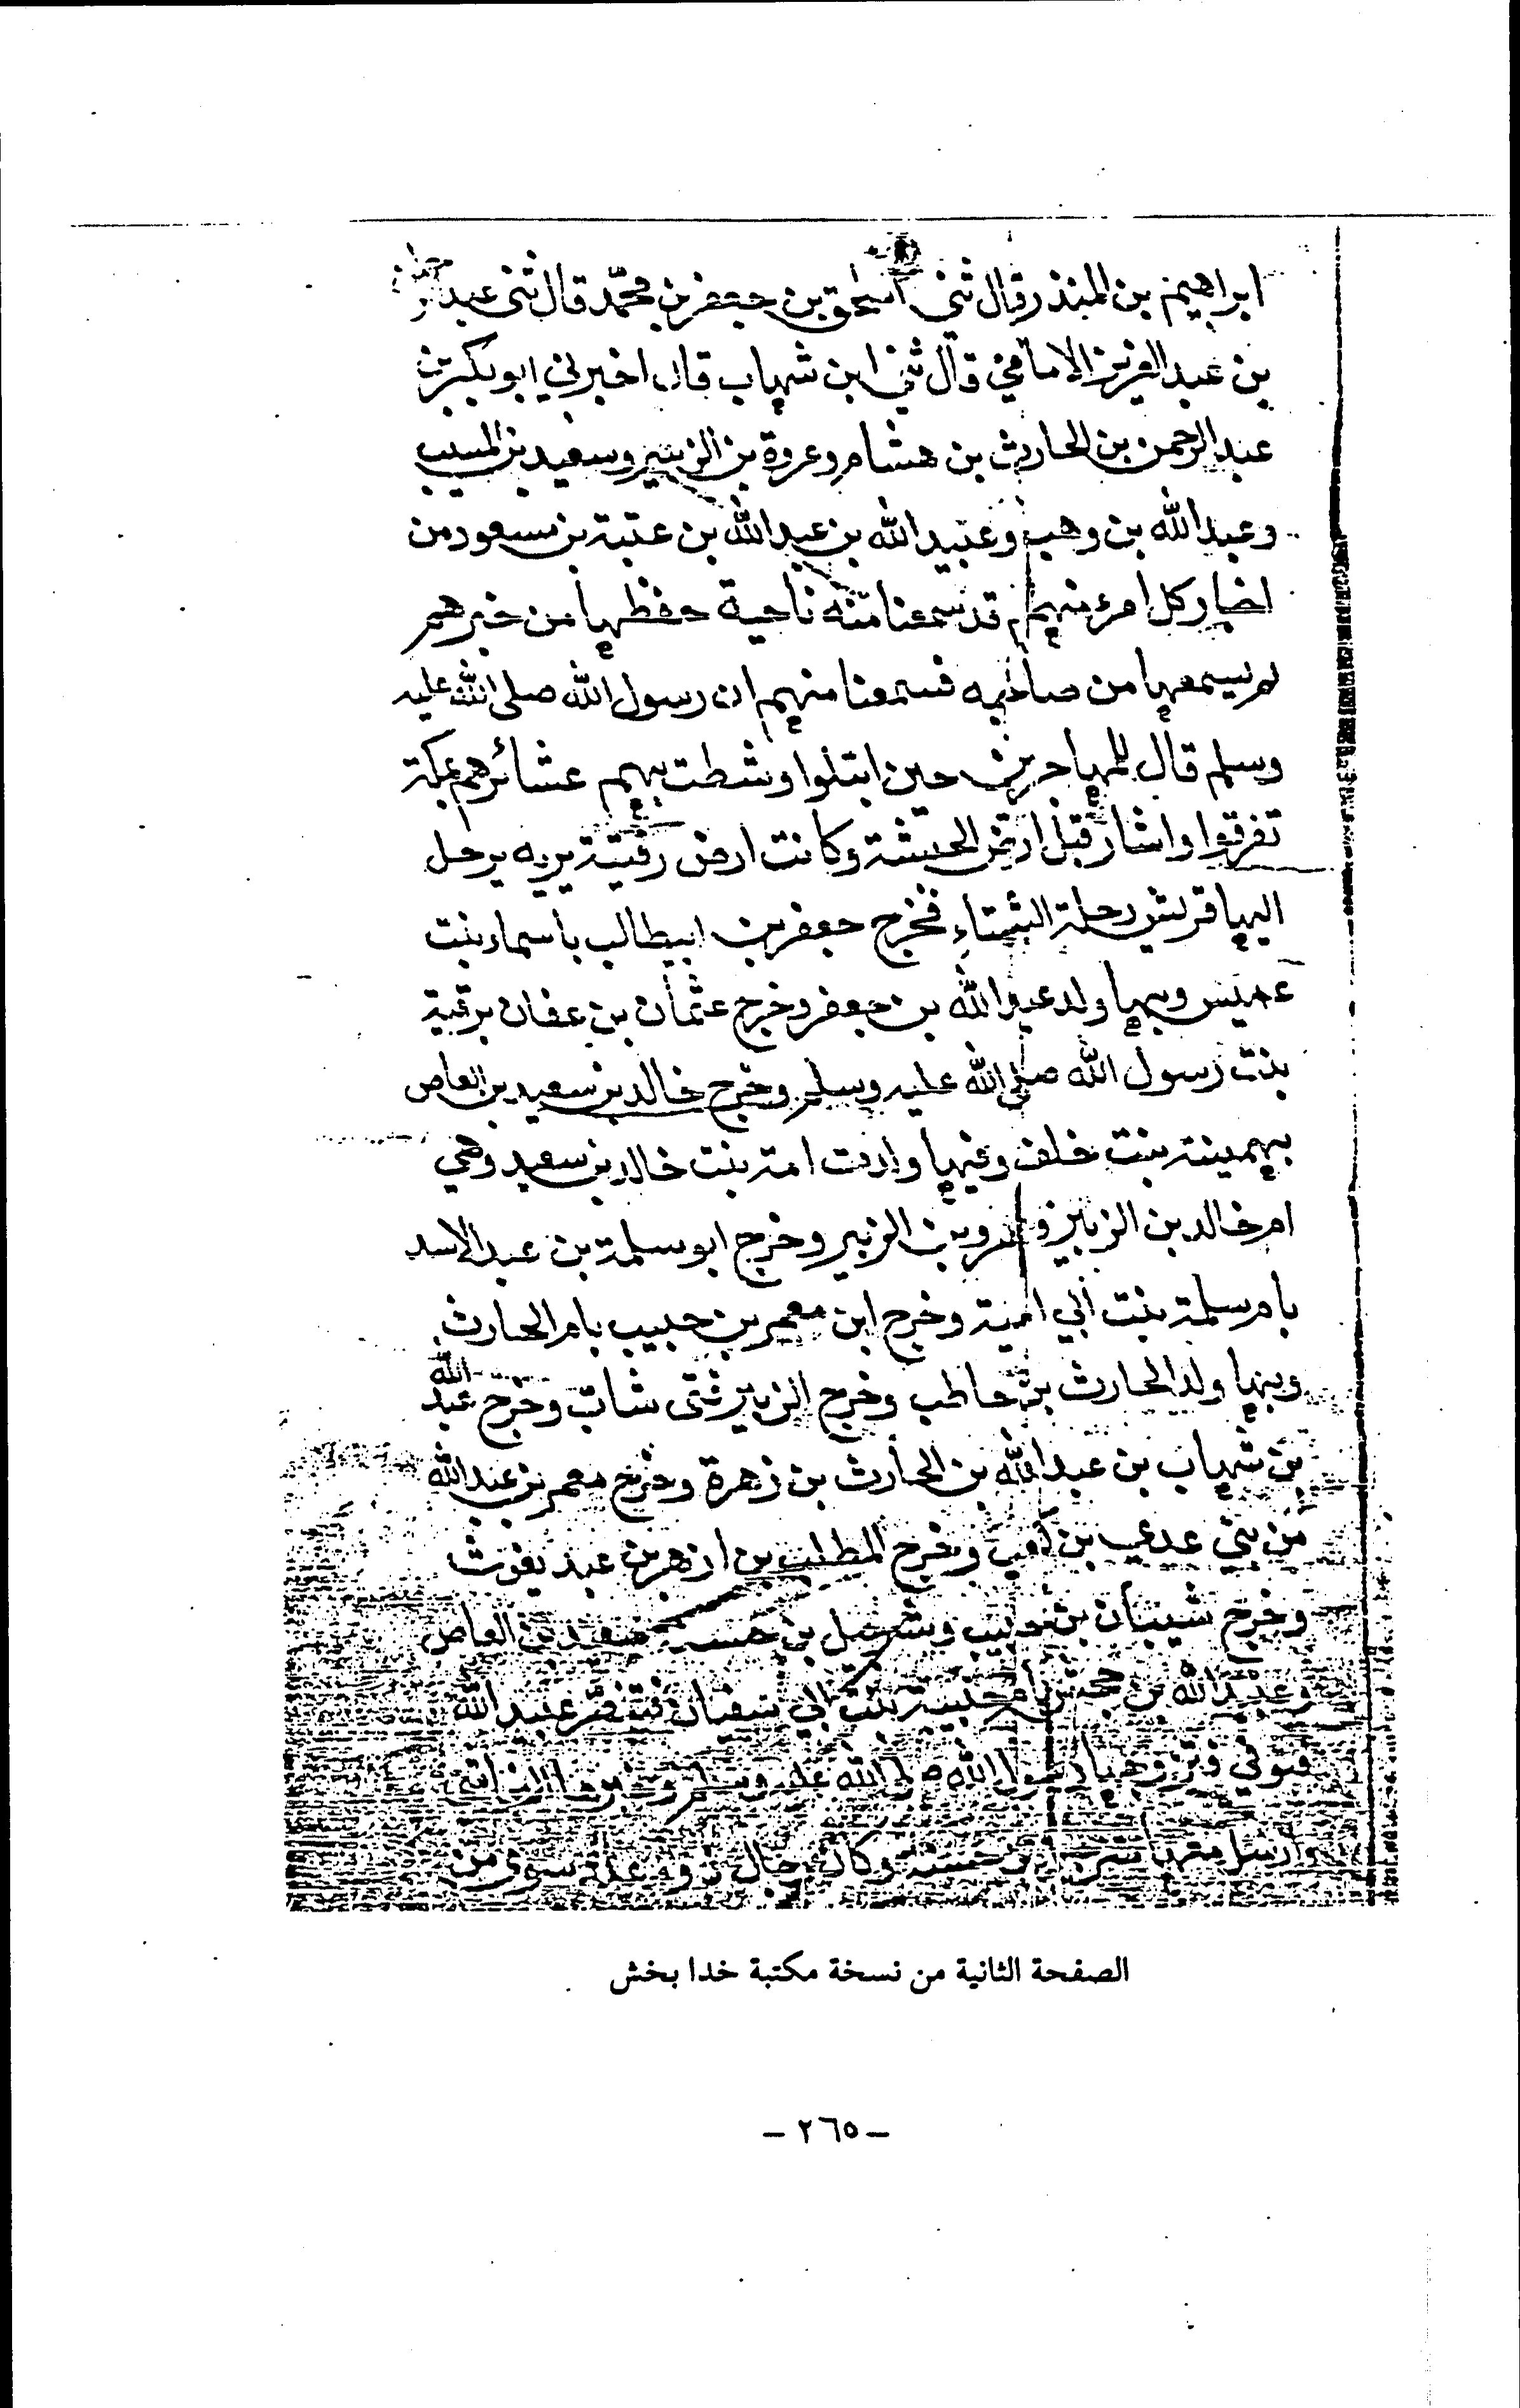 ابراهيم بن المنذر قال ثنى اسحق بن جعفر بن محمد قال ثنى عبد
بن عبد العزيز الامامي قال ثني ابن شهاب قال اخبرني ابو بكر بن
عبد الرحمن بن الحارث بن هشام وعروة بن الزبير وسعيد بن المسيب
وعبد الله بن وهب وعبيد الله بن عبد الله بن عتبة بن مسعود من
اخبار كل امرء منهم قد سمعنا منه ناحية حفظها من خبرهم
لم يسمعها من صاحبه فسمعنا منهم ان رسول الله صلى الله عليه
وسلم قال للمهاجرين حين ابتلوا وشطت بهم عشائرهم بمكة
تفرقوا واشار قبل ارض الحبشة وكانت ارض يرحل
اليها قريش رحلة الشتاء فخرج جعفر بن ابيطالب باسماء بنت
عميس وبها ولد عبد الله بن جعفر وخرج عثمان بن عفان برقية
بنت رسول الله صلى الله عليه وسلم وخرج خالد بن سعيد بن العاص
بهمينة بنت خلف وفيها ولدت امة بنت خالد بن سعيد وهي
ام خالد بن الزبير وعمرو بن الزبير وخرج ابو سلمة بن عبد الاسد
بام سلمة بنت ابي امية وخرج ابن معمر بن حبيب بام الحارث
وبها ولد الحارث بن حاطب وخرج الزبير فتى شاب وخرج عبد الله
بن شهاب بن عبد الله بن الحارث بن زهرة وخرج معمر بن عبد الله
من بني عدي بن كعب وخرج المطلب بن ازهر بن عبد يغوث
وخرج بن وشرحبيل بن حسنة سعيد بن العاص
وعبيد الله بن جحش بام حبيبة بنت ابي سفيان فتنصر عبيد الله
فتوفي فتزوجها رسول الله صلى الله عليه وسلم
وارسل معها بن حسنة وكان
الصفحة الثانية من نسخة مكتبة خدا بخش
– ٢٦٥ –